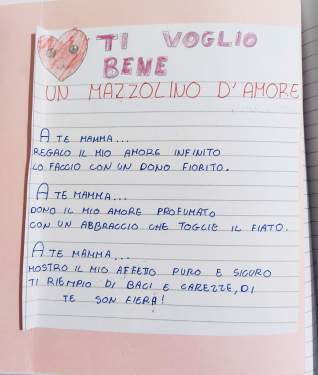 TI VOGLIO
BENE
UN MAZZOLINO D'AMORE
A TE MAMMA...
REGALO IL MIO AMORE INFINITO
LO FACCIO CON UN DONO FIORITO.
A TE MAMMA...
DONO IL MIO AMORE PROFUMATO
CON UN ABBRACCIO CHE TOGLIE IL FIATO.
A TE MAMMA...
MOSTRO IL MIO AFFETTO PURO E SICURO
TI RIEMPIO DI BACI E CAREZZE, DI
TE SON FIERA!